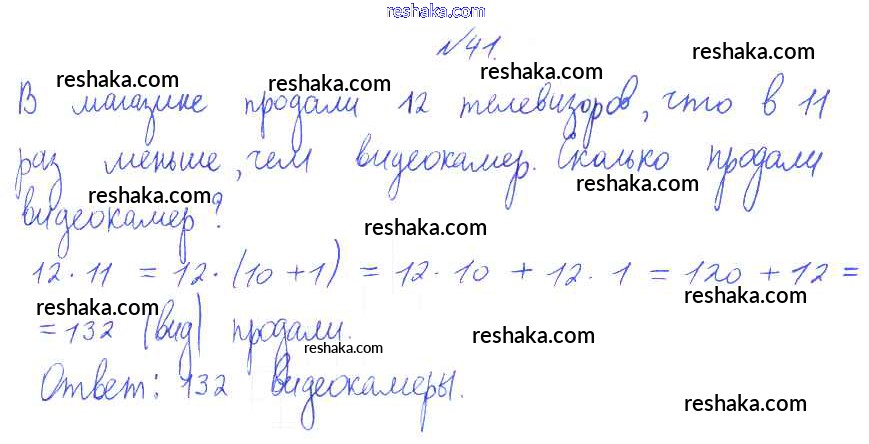 reshaka.com
№41.
reshaka.com reshaka.com reshaka.com reshaka.com
В магазине продали 12 телевизоров, что в 11
раз меньше, чем видеокамер. Сколько продали
reshaka.com reshaka.com
видеокамер?
reshaka.com
12 · 11 = 12 · (10 + 1) = 12 · 10 + 12 · 1 = 120 + 12 =
reshaka.com reshaka.com
= 132 (вид) продали.
reshaka.com reshaka.com
Ответ: 132 видеокамеры.
reshaka.com